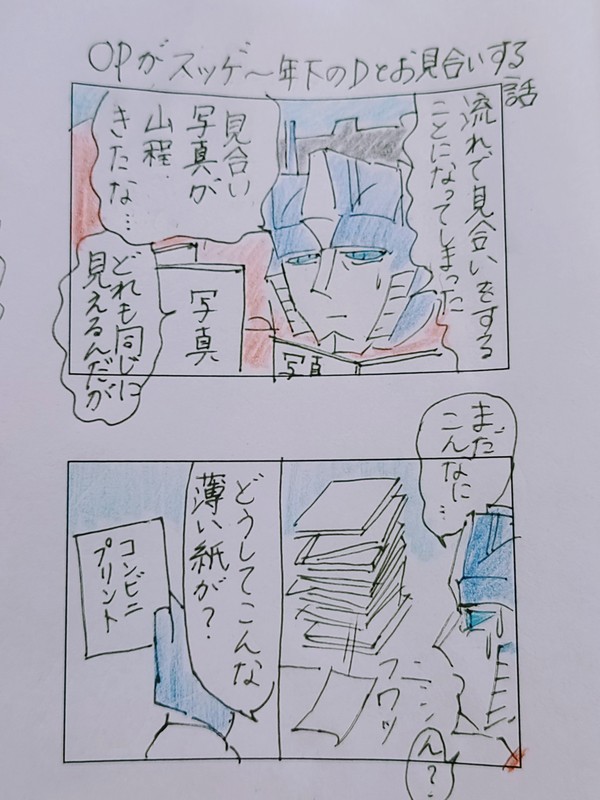 OPがスッゲ〜年下のDとお見合いする
話
流れで見合いをする
ことになってしまった
見合い
写真が
山程
きたな…
どれも同じに
見えるんだが
写真
写真
まだ
こんなに…
フワッ
ん?
どうしてこんな
薄い紙が?
コンビニ
プリント